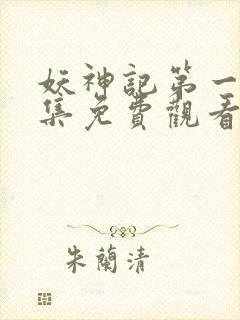 妖神記第一
集免費觀看
朱蘭清